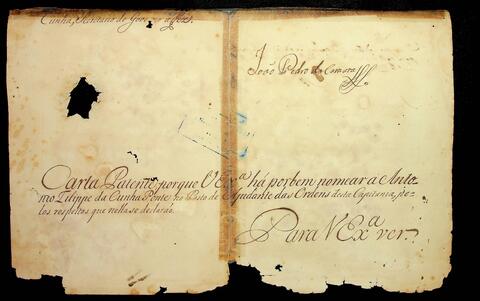 Cunha, Secretario do Governo a fez.
João Pedro da Camara
Carta Patente porque V Exª há porbem nomear a Anto
nio Filippe da Cunha Ponte, no Posto de Ajudante das Ordens desta Capitania, pe-
los respeitos que nella se declarão.
Para V Exª ver